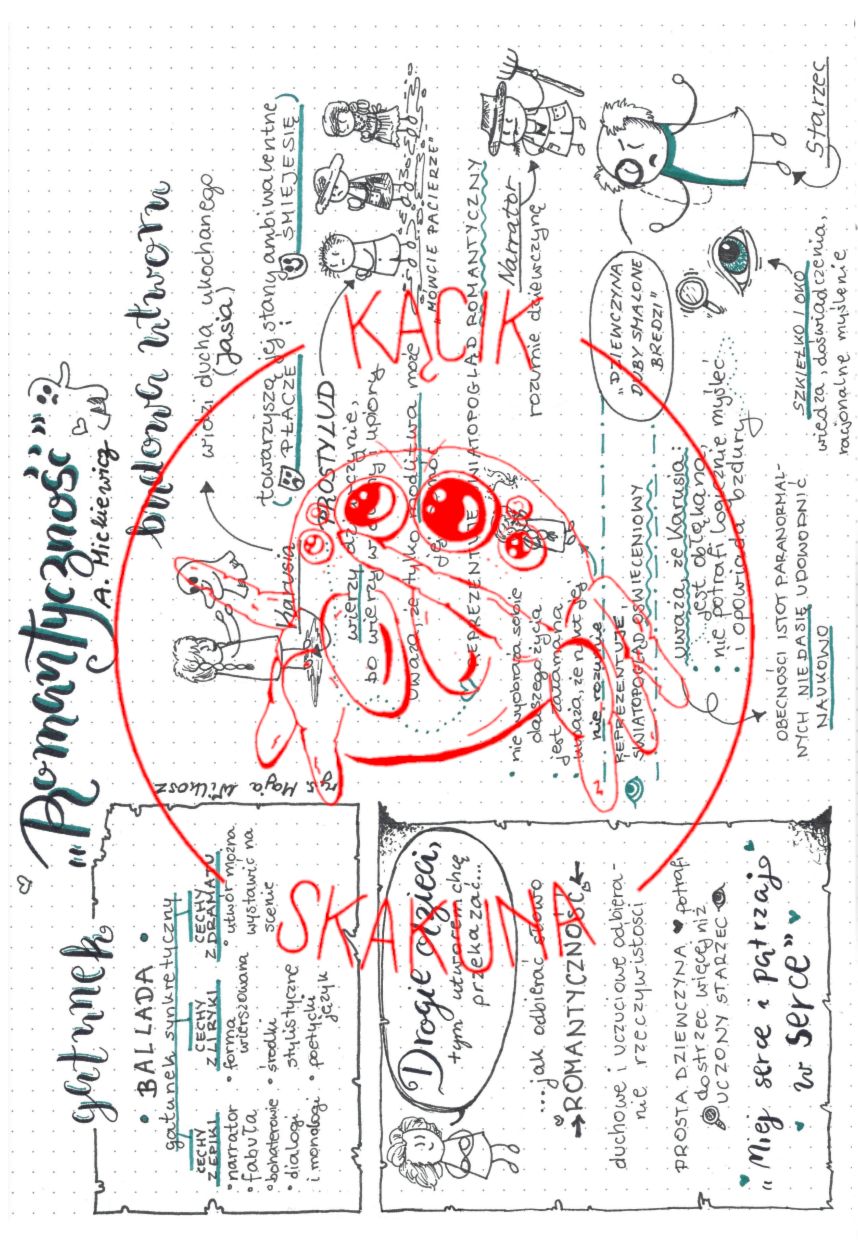 "Romantyczność"
A. Mickiewicz
gatunek
• BALLADA •
gatunek synkretyczny
CECHY Z EPIKI
• narrator
• fabuła
• bohaterowie
• dialogi
i monologi
CECHY Z LIRYKI
• forma
wierszowana
• środki
stylistyczne
• poetycki
język
CECHY Z DRAMATU
• utwór można
wystawić na
scenie
rys. Maja Wilkosz
Drogie dzieci,
tym utworem chcę
przekazać...
...jak odbierać słowo
→ROMANTYCZNOŚĆ←
duchowe i uczuciowe odbiera-
nie rzeczywistości
PROSTA DZIEWCZYNA potrafi
dostrzec więcej niż
UCZONY STARZEC
"Miej serce i patrzaj
w serce"
budowa utworu
Karusia
widzi ducha ukochanego
(Jasia)
towarzyszą jej stany ambiwalentne
( PŁACZE i ŚMIEJE SIĘ )
PROSTY LUD
wierzy
bo wierzy w upiory
uważa, że tylko modlitwa może
jej
"MÓWCIE PACIERZE"
REPREZENTUJE ŚWIATOPOGLĄD ROMANTYCZNY
Narrator
rozumie dziewczynę
• nie wyobraża sobie
dalszego życia
• jest załamana
• uważa, że nikt jej
nie rozumie
REPREZENTUJE
ŚWIATOPOGLĄD OŚWIECENIOWY
"DZIEWCZYNA
DUBY SMALONE
BREDZI"
Starzec
uważa że Karusia
• jest obłąkana,
• nie potrafi logicznie myśleć
• i opowiada bzdury
SZKIEŁKO I OKO
wiedza, doświadczenia,
racjonalne myślenie
OBECNOŚCI ISTOT PARANORMAL-
NYCH NIE DA SIĘ UDOWODNIĆ
NAUKOWO
KĄCIK
SKAKUNA